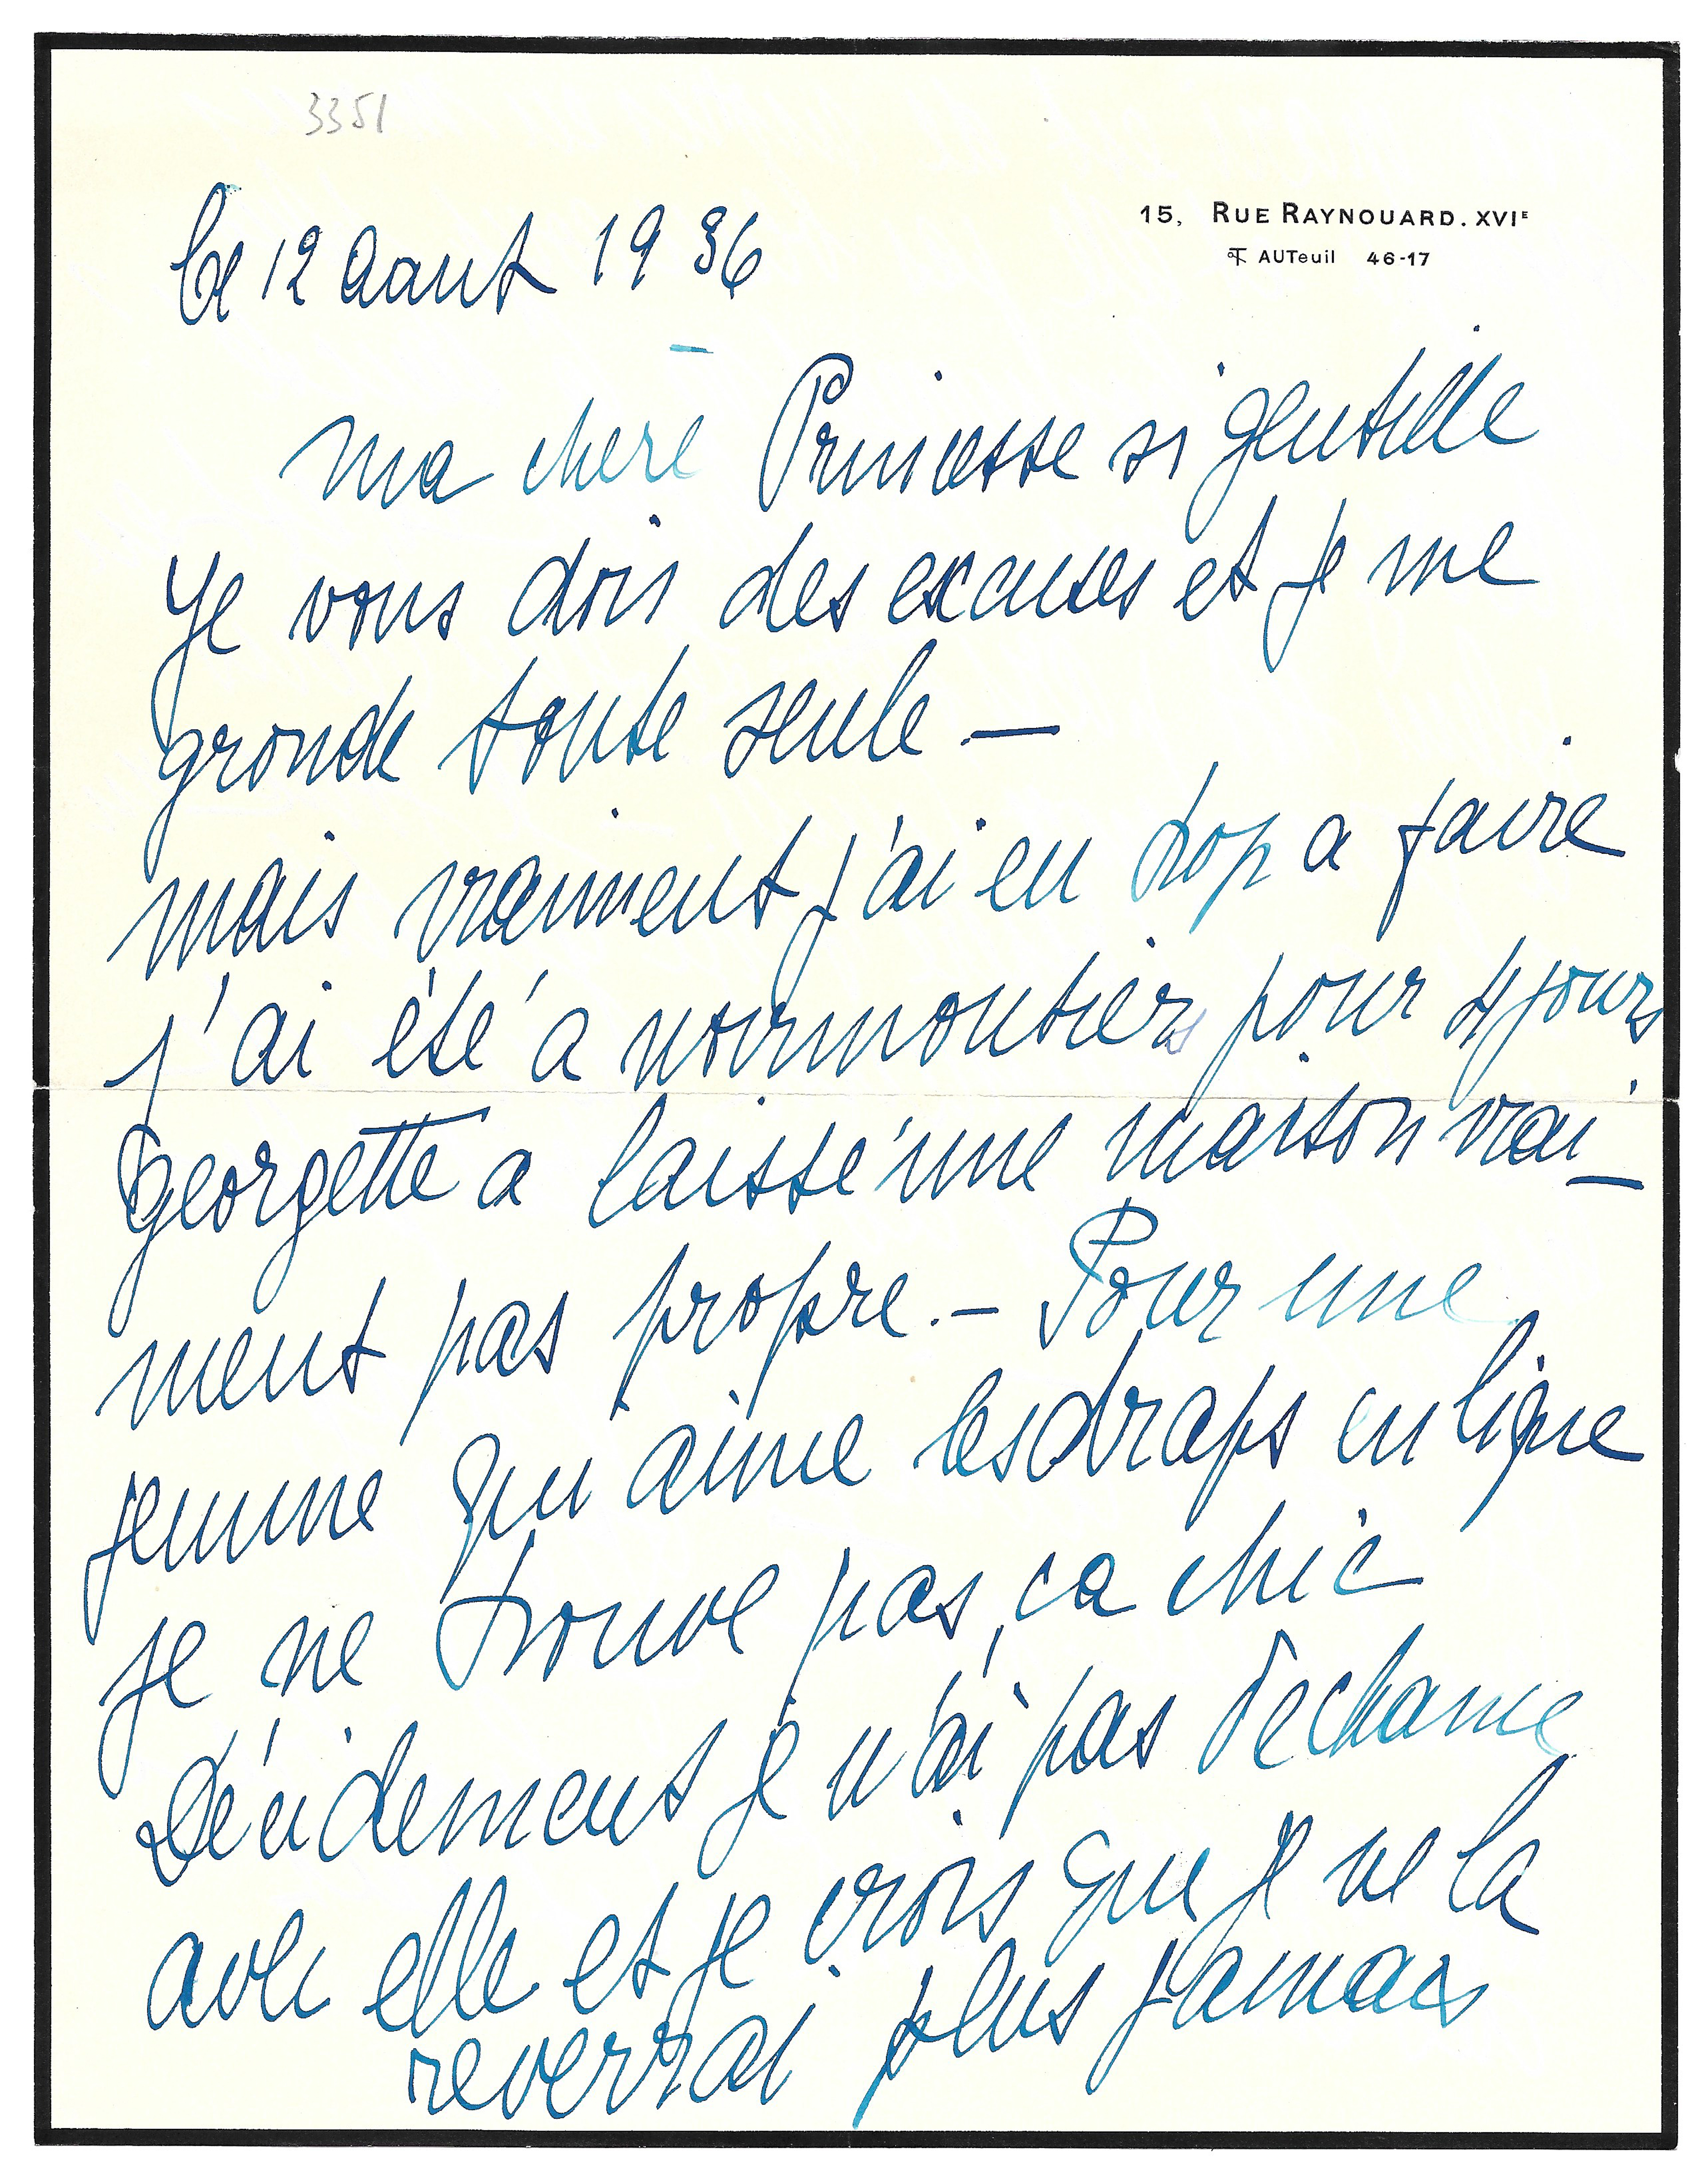 3351
15, RUE RAYNOUARD. XVIE
AUTeuil 46-17
le 12 Aout 1936
ma chere Princesse si gentille
Je vous dois des excuses et je me
gronde toute seule —
mais vraiment j'ai eu trop a faire
j'ai été a noirmoutiers pour 4 jours
georgette a laissé une maison vrai-
ment pas propre. — Pour une
femme qui aime les draps en ligne
je ne trouve pas ça chic
Décidement je n'ai pas de chance
avec elle et je crois que je ne la
reverrai plus jamais